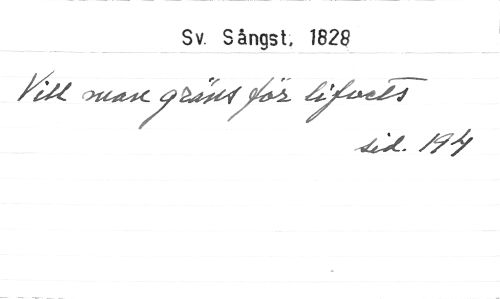 Sv. Sångst, 1828
Vill man gräns för lifvets
sid. 194